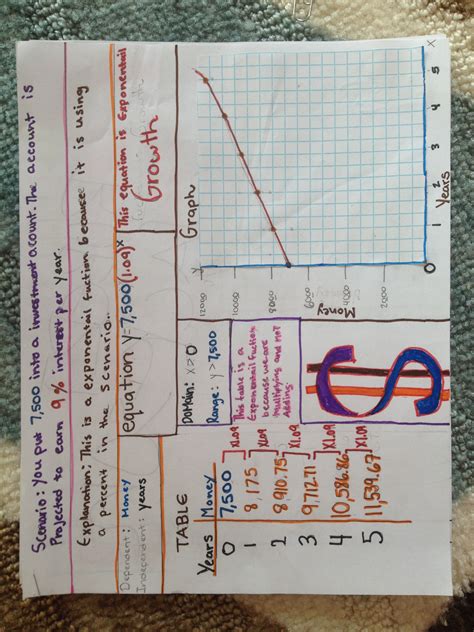 Scenario: You put 7,500 into a investment account. The account is
Projected to earn 9% interest per year.
Explanation: This is a exponential fuction because it is using
a percent in the scenario.
Dependent: Money
Independent: years
equation y=7,500(1.09)^x
This equation is Exponentail
Growth
TABLE
Years Money
0 7,500
1 8,175
2 8,910.75
3 9,712.71
4 10,586.86
5 11,539.67
]x1.09
]x1.09
]x1.09
]x1.09
]x1.09
Domain: x≥0
Range: y>7,500
This table is a
Exponentail fuction
because we are
Multiplying and not
Adding.
$
Graph
Y
12000
10000
8000
6000
4000
2000
0
Money
1 2 3 4 5 X
Years